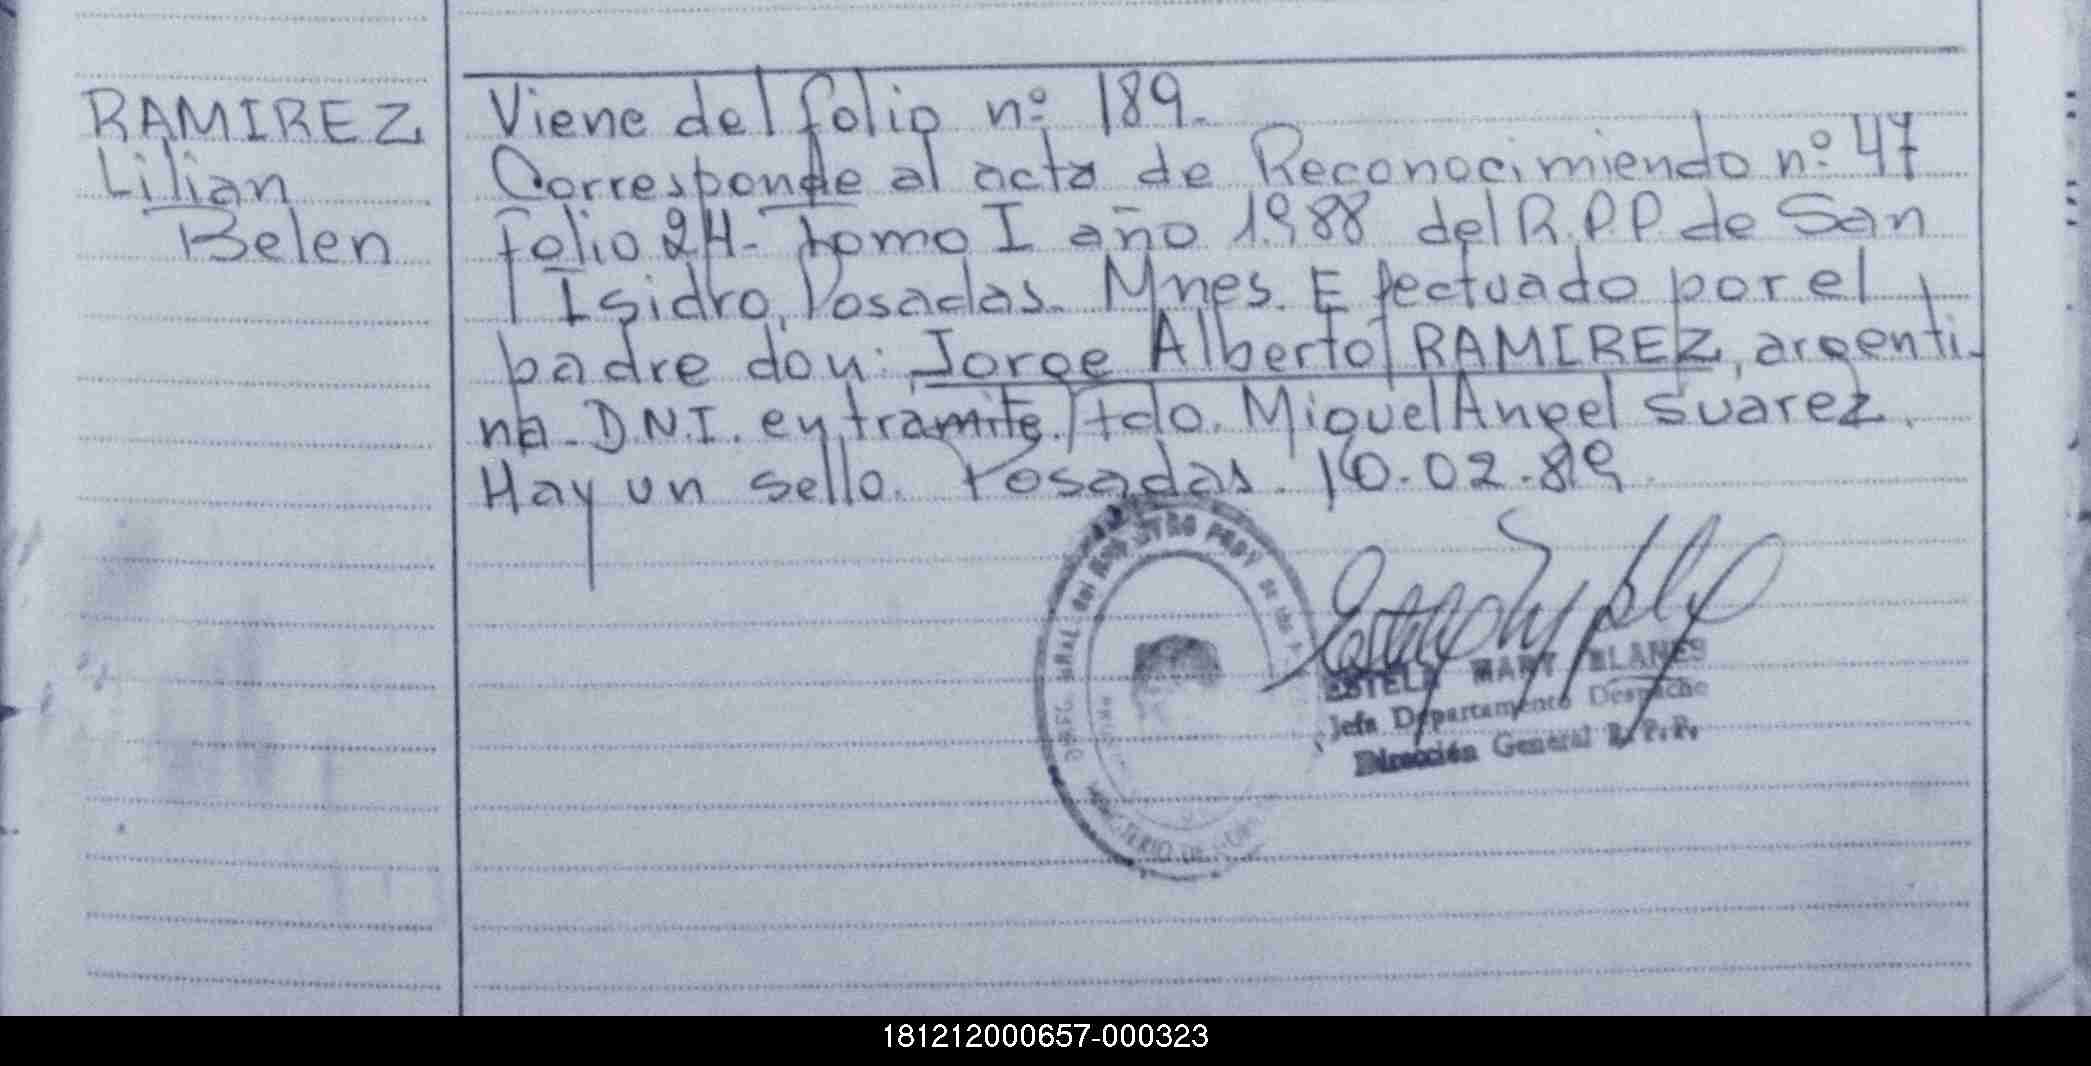 RAMIREZ
Lilian
Belen
Viene del folio nº 189.
Corresponde al acta de Reconocimiendo nº 47
folio 24- tomo I año 1.988 del R.P.P. de San
Isidro, Posadas. Mnes. Efectuado por el
padre don: Jorge Alberto RAMIREZ, argenti-
na D.N.I. en tramite. fdo. Miguel Angel Suarez.
Hay un sello. Posadas. 10.02.89.
ESTELA MARY BLANES
Jefa Departamento Despacho
Dirección General R.P.P.
MINISTERIO DE
181212000657-000323